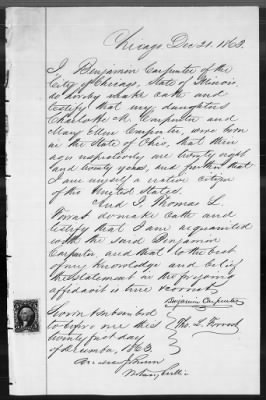 Chicago Dec 21. 1863.
I Benjamin Carpenter of the
City of Chicago, State of Illinois,
do hereby make oath and
testify that my daughters
Charlotte M. Carpenter and
Mary Ellen Carpenter, were born
in the State of Ohio, that their
ages respectively are twenty eight
and twenty years, and further that
I am myself a native citizen
of the United States.
And I, Thomas L.
Forrest do make oath and
testify that I am acquainted
with the said Benjamin
Carpenter and that to the best
of my knowledge and belief
the statement in the forgoing
affidavit is true & correct
Benjamin Carpenter
Sworn & subscribed
to before me this
Tho. L. Forrest
twenty first day
of December, 1863.
Notary Public